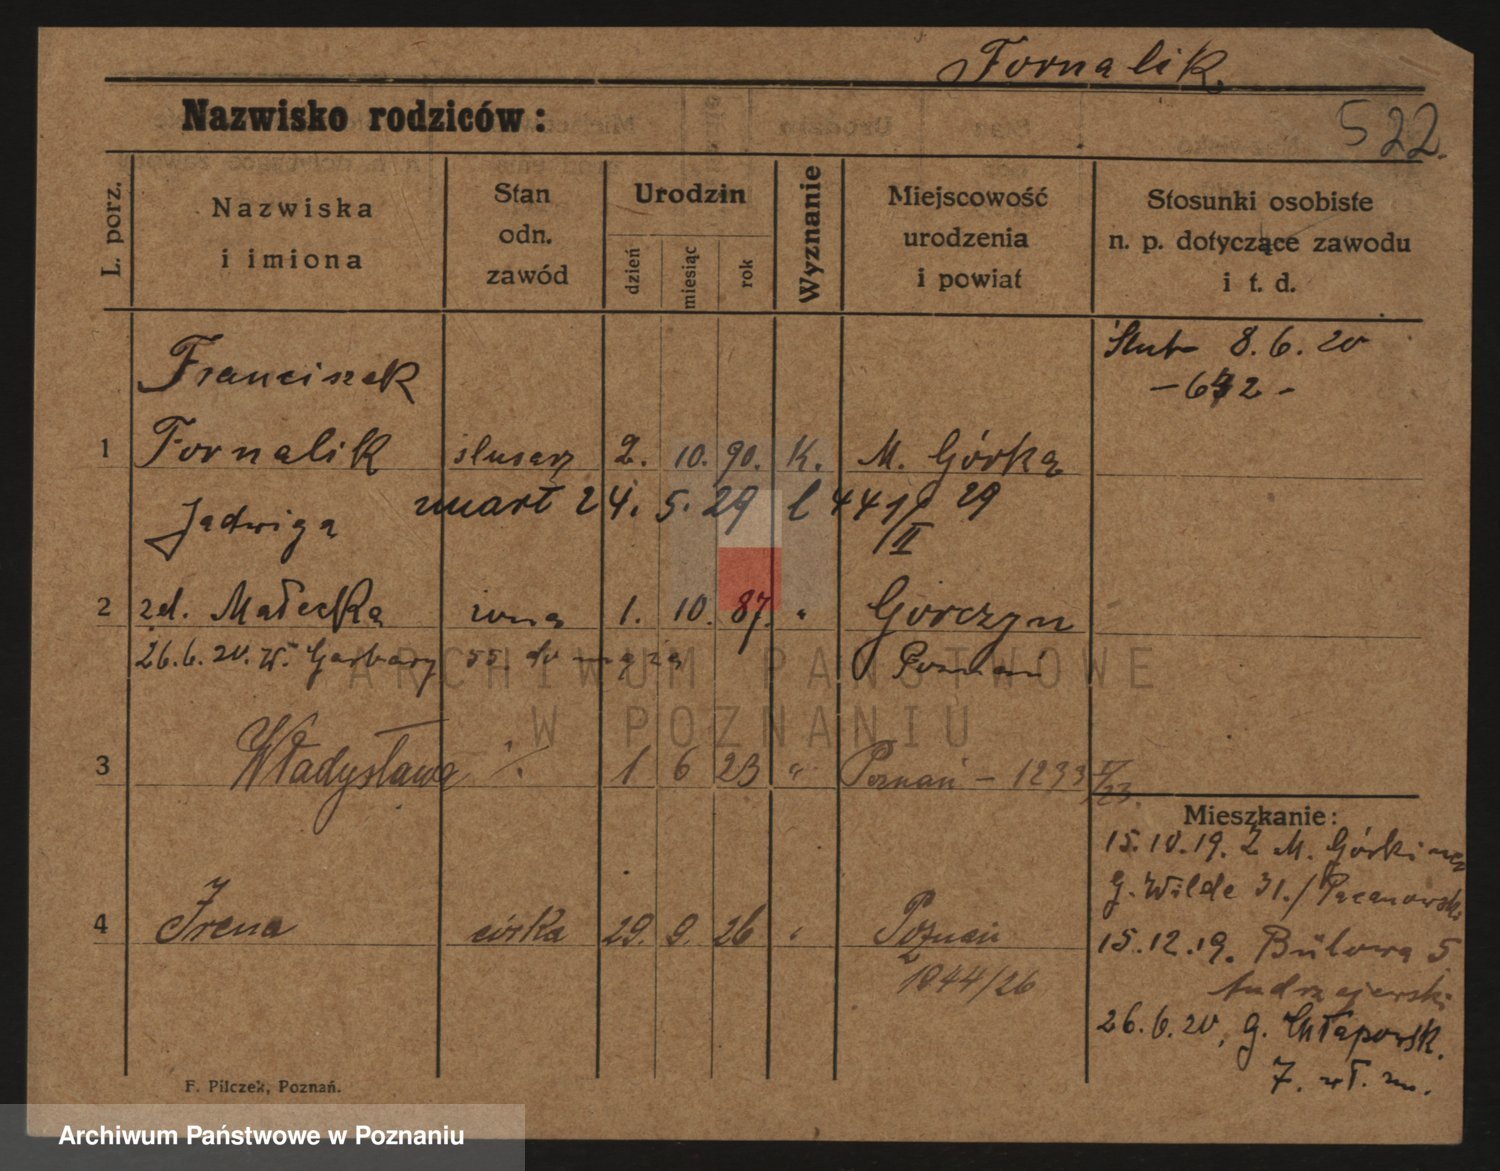 Fornalik.
Nazwisko rodziców:
522.
L. porz.
Nazwiska
i imiona
Stan
odn.
zawód
Urodzin
dzień
miesiąc
rok
Wyznanie
Miejscowość
urodzenia
i powiat
Stosunki osobiste
n. p. dotyczące zawodu
i t. d.
Ślub 8.6.20
Franciszek
1 Fornalik ślusarz 2. 10. 90. K. M. Górka
umarł 24. 5. 29 441/29
II
Jadwiga
2 zd. Małecka żona 1. 10. 87. " Górczyn
26.6.20. W. Garbary 55. do męża Poznań
ARCHIWUM PAŃSTWOWE
W POZNANIU
3 Władysława 1 6 23 " Poznań - 1233
Mieszkanie:
15.10.19. z M. Górki
G. Wilde 31./
4 Irena córka 29. 9. 26 " Poznań
1944/26
15.12.19. Bülowa 5
Andrzejewski
26.6.20, G. Chłapowsk.
7. wł. m.
F. Pilczek, Poznań.
Archiwum Państwowe w Poznaniu